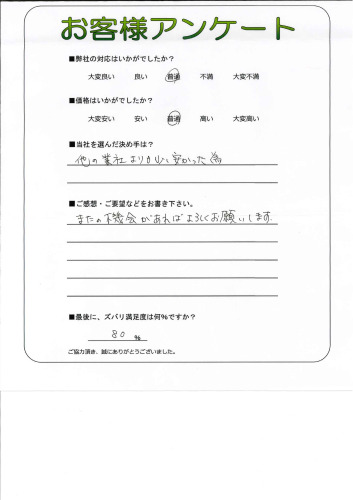 お客様アンケート
■弊社の対応はいかがでしたか？
大変良い 良い 普通 不満 大変不満
■価格はいかがでしたか？
大変安い 安い 普通 高い 大変高い
■当社を選んだ決め手は？
他の業社より少し安かった為
■ご感想・ご要望などをお書き下さい。
またの機会があればよろしくお願いします。
■最後に、ズバリ満足度は何％ですか？
80 %
ご協力頂き、誠にありがとうございました。